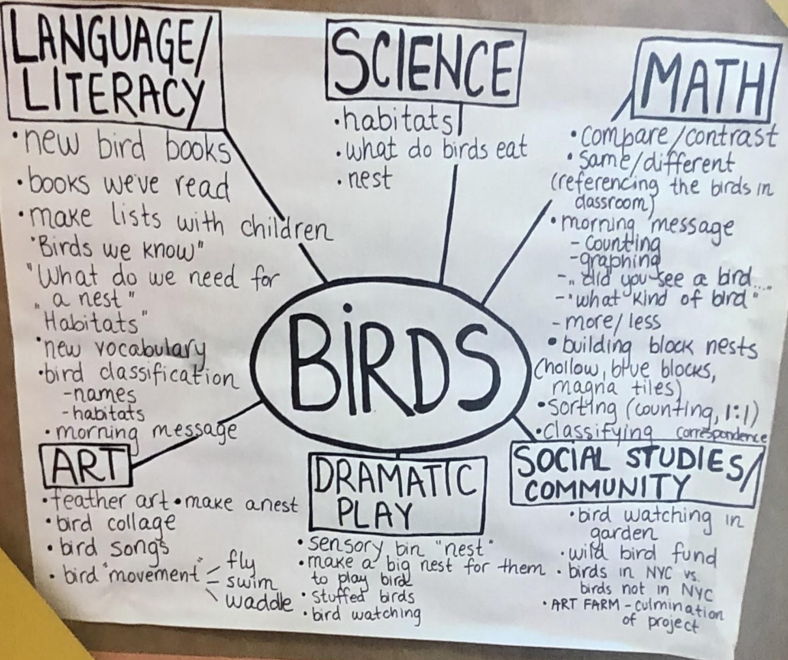 LANGUAGE/
LITERACY
• new bird books
• books we've read
• make lists with children
"Birds we know"
"What do we need for
a nest"
"Habitats"
• new vocabulary
• bird classification
- names
- habitats
• morning message
SCIENCE
• habitats
• what do birds eat
• nest
MATH
• compare/contrast
• same/different
(referencing the birds in
classroom)
• morning message
- counting
- graphing
- "did you see a bird..."
- "what kind of bird"
- more/less
• building block nests
(hollow, blue blocks,
magna tiles)
• sorting (counting, 1:1)
• classifying correspondence
BIRDS
ART
• feather art • make a nest
• bird collage
• bird songs
• bird "movement"
fly
swim
waddle
DRAMATIC
PLAY
• sensory bin "nest"
• make a big nest for them
to play bird
• stuffed birds
• bird watching
SOCIAL STUDIES/
COMMUNITY
• bird watching in
garden
• wild bird fund
• birds in NYC vs.
birds not in NYC
• ART FARM - culmination
of project